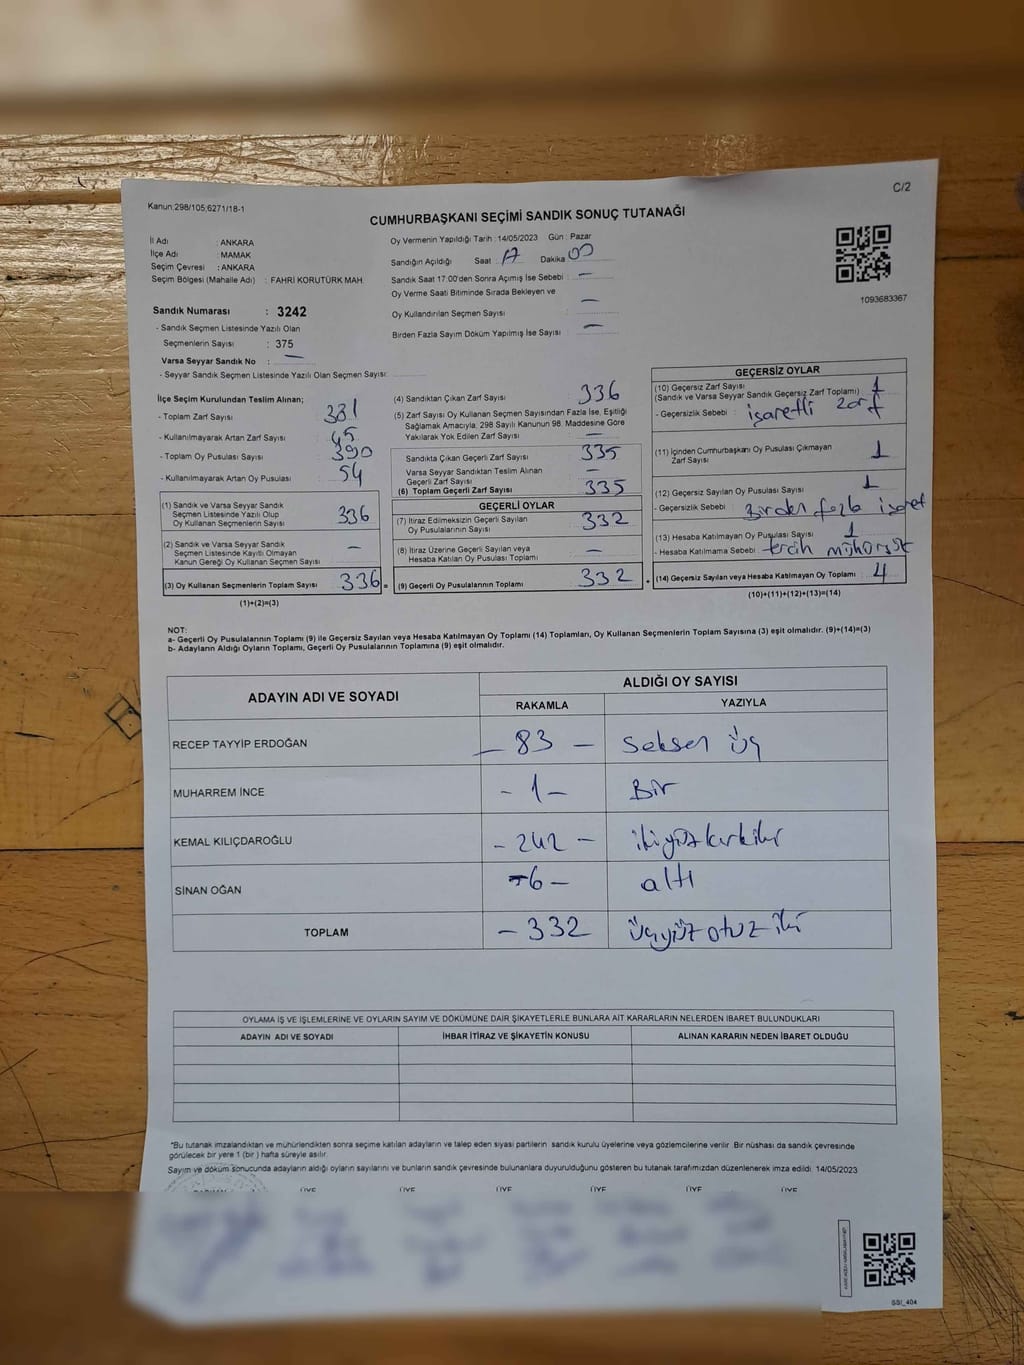 C/2
Kanun:298/105;6271/18-1
CUMHURBAŞKANI SEÇİMİ SANDIK SONUÇ TUTANAĞI
İl Adı : ANKARA
İlçe Adı : MAMAK
Seçim Çevresi : ANKARA
Seçim Bölgesi (Mahalle Adı) : FAHRİ KORUTÜRK MAH.
Oy Vermenin Yapıldığı Tarih : 14/05/2023 Gün : Pazar
Sandığın Açıldığı Saat 17 Dakika 00
Sandık Saat 17:00'den Sonra Açımış İse Sebebi : —
Oy Verme Saati Bitiminde Sırada Bekleyen ve
Oy Kullandırılan Seçmen Sayısı —
Birden Fazla Sayım Döküm Yapılmış İse Sayısı : —
1093683367
Sandık Numarası : 3242
- Sandık Seçmen Listesinde Yazılı Olan
Seçmenlerin Sayısı : 375
Varsa Seyyar Sandık No : —
- Seyyar Sandık Seçmen Listesinde Yazılı Olan Seçmen Sayısı:
İlçe Seçim Kurulundan Teslim Alınan;
- Toplam Zarf Sayısı 381
- Kullanılmayarak Artan Zarf Sayısı 45
- Toplam Oy Pusulası Sayısı 390
- Kullanılmayarak Artan Oy Pusulası 54
(1) Sandık ve Varsa Seyyar Sandık
Seçmen Listesinde Yazılı Olup
Oy Kullanan Seçmenlerin Sayısı 336
(2) Sandık ve Varsa Seyyar Sandık
Seçmen Listesinde Kayıtlı Olmayan
Kanun Gereği Oy Kullanan Seçmen Sayısı —
(3) Oy Kullanan Seçmenlerin Toplam Sayısı 336 =
(1)+(2)=(3)
(4) Sandıktan Çıkan Zarf Sayısı 336
(5) Zarf Sayısı Oy Kullanan Seçmen Sayısından Fazla İse, Eşitliği
Sağlamak Amacıyla, 298 Sayılı Kanunun 98. Maddesine Göre
Yakılarak Yok Edilen Zarf Sayısı —
Sandıkta Çıkan Geçerli Zarf Sayısı 335
Varsa Seyyar Sandıktan Teslim Alınan
Geçerli Zarf Sayısı —
(6) Toplam Geçerli Zarf Sayısı 335
GEÇERLİ OYLAR
(7) İtiraz Edilmeksizin Geçerli Sayılan
Oy Pusulalarının Sayısı 332
(8) İtiraz Üzerine Geçerli Sayılan veya
Hesaba Katılan Oy Pusulası Toplamı —
(9) Geçerli Oy Pusulalarının Toplamı 332 +
GEÇERSİZ OYLAR
(10) Geçersiz Zarf Sayısı 1
(Sandık ve Varsa Seyyar Sandık Geçersiz Zarf Toplamı)
- Geçersizlik Sebebi : işaretli zarf
(11) İçinden Cumhurbaşkanı Oy Pusulası Çıkmayan
Zarf Sayısı 1
(12) Geçersiz Sayılan Oy Pusulası Sayısı 1
- Geçersizlik Sebebi : Birden fazla işaret
(13) Hesaba Katılmayan Oy Pusulası Sayısı 1
- Hesaba Katılmama Sebebi : tercih mühürsüz
(14) Geçersiz Sayılan veya Hesaba Katılmayan Oy Toplamı 4
(10)+(11)+(12)+(13)=(14)
NOT:
a- Geçerli Oy Pusulalarının Toplamı (9) ile Geçersiz Sayılan veya Hesaba Katılmayan Oy Toplamı (14) Toplamları, Oy Kullanan Seçmenlerin Toplam Sayısına (3) eşit olmalıdır. (9)+(14)=(3)
b- Adayların Aldığı Oyların Toplamı, Geçerli Oy Pusulalarının Toplamına (9) eşit olmalıdır.
ADAYIN ADI VE SOYADI ALDIĞI OY SAYISI
RAKAMLA YAZIYLA
RECEP TAYYİP ERDOĞAN — 83 — seksen üç
MUHARREM İNCE - 1 - Bir
KEMAL KILIÇDAROĞLU - 242 - ikiyüzkırkiki
SİNAN OĞAN - 6 - altı
TOPLAM - 332 üçyüz otuz iki
OYLAMA İŞ VE İŞLEMLERİNE VE OYLARIN SAYIM VE DÖKÜMÜNE DAİR ŞİKAYETLERLE BUNLARA AİT KARARLARIN NELERDEN İBARET BULUNDUKLARI
ADAYIN ADI VE SOYADI İHBAR İTİRAZ VE ŞİKAYETİN KONUSU ALINAN KARARIN NEDEN İBARET OLDUĞU
*Bu tutanak imzalandıktan ve mühürlendikten sonra seçime katılan adayların ve talep eden siyasi partilerin sandık kurulu üyelerine veya gözlemcilerine verilir. Bir nüshası da sandık çevresinde
görülecek bir yere 1 (bir) hafta süreyle asılır.
Sayım ve döküm sonucunda adayların aldığı oyların sayılarını ve bunların sandık çevresinde bulunanlara duyurulduğunu gösteren bu tutanak tarafımızdan düzenlenerek imza edildi. 14/05/2023
ÜYE ÜYE ÜYE ÜYE ÜYE ÜYE
SSI_404